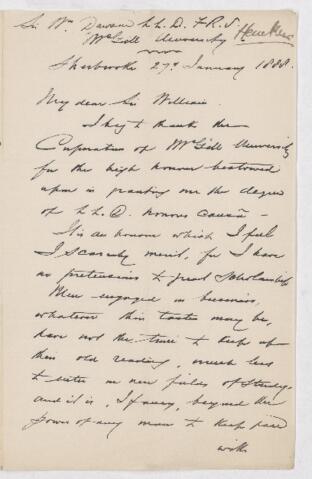 Sir Wm Dawson LL.D. F.R.S.
McGill University
Heneker
Sherbrooke 27th January 1888.
My dear Sir William.
I beg to thank the
Corporation of McGill University
for the high honour bestowed
upon in granting me the degree
of LL.D. honoris causâ –
It is an honour which I feel
I scarcely merit, for I have
no pretensions to great scholarship
Men engaged in business,
whatever their tastes may be,
have not the time to keep up
their old reading, much less
to enter on new fields of study.
and it is, I fancy, beyond the
power of any man to keep pace
with